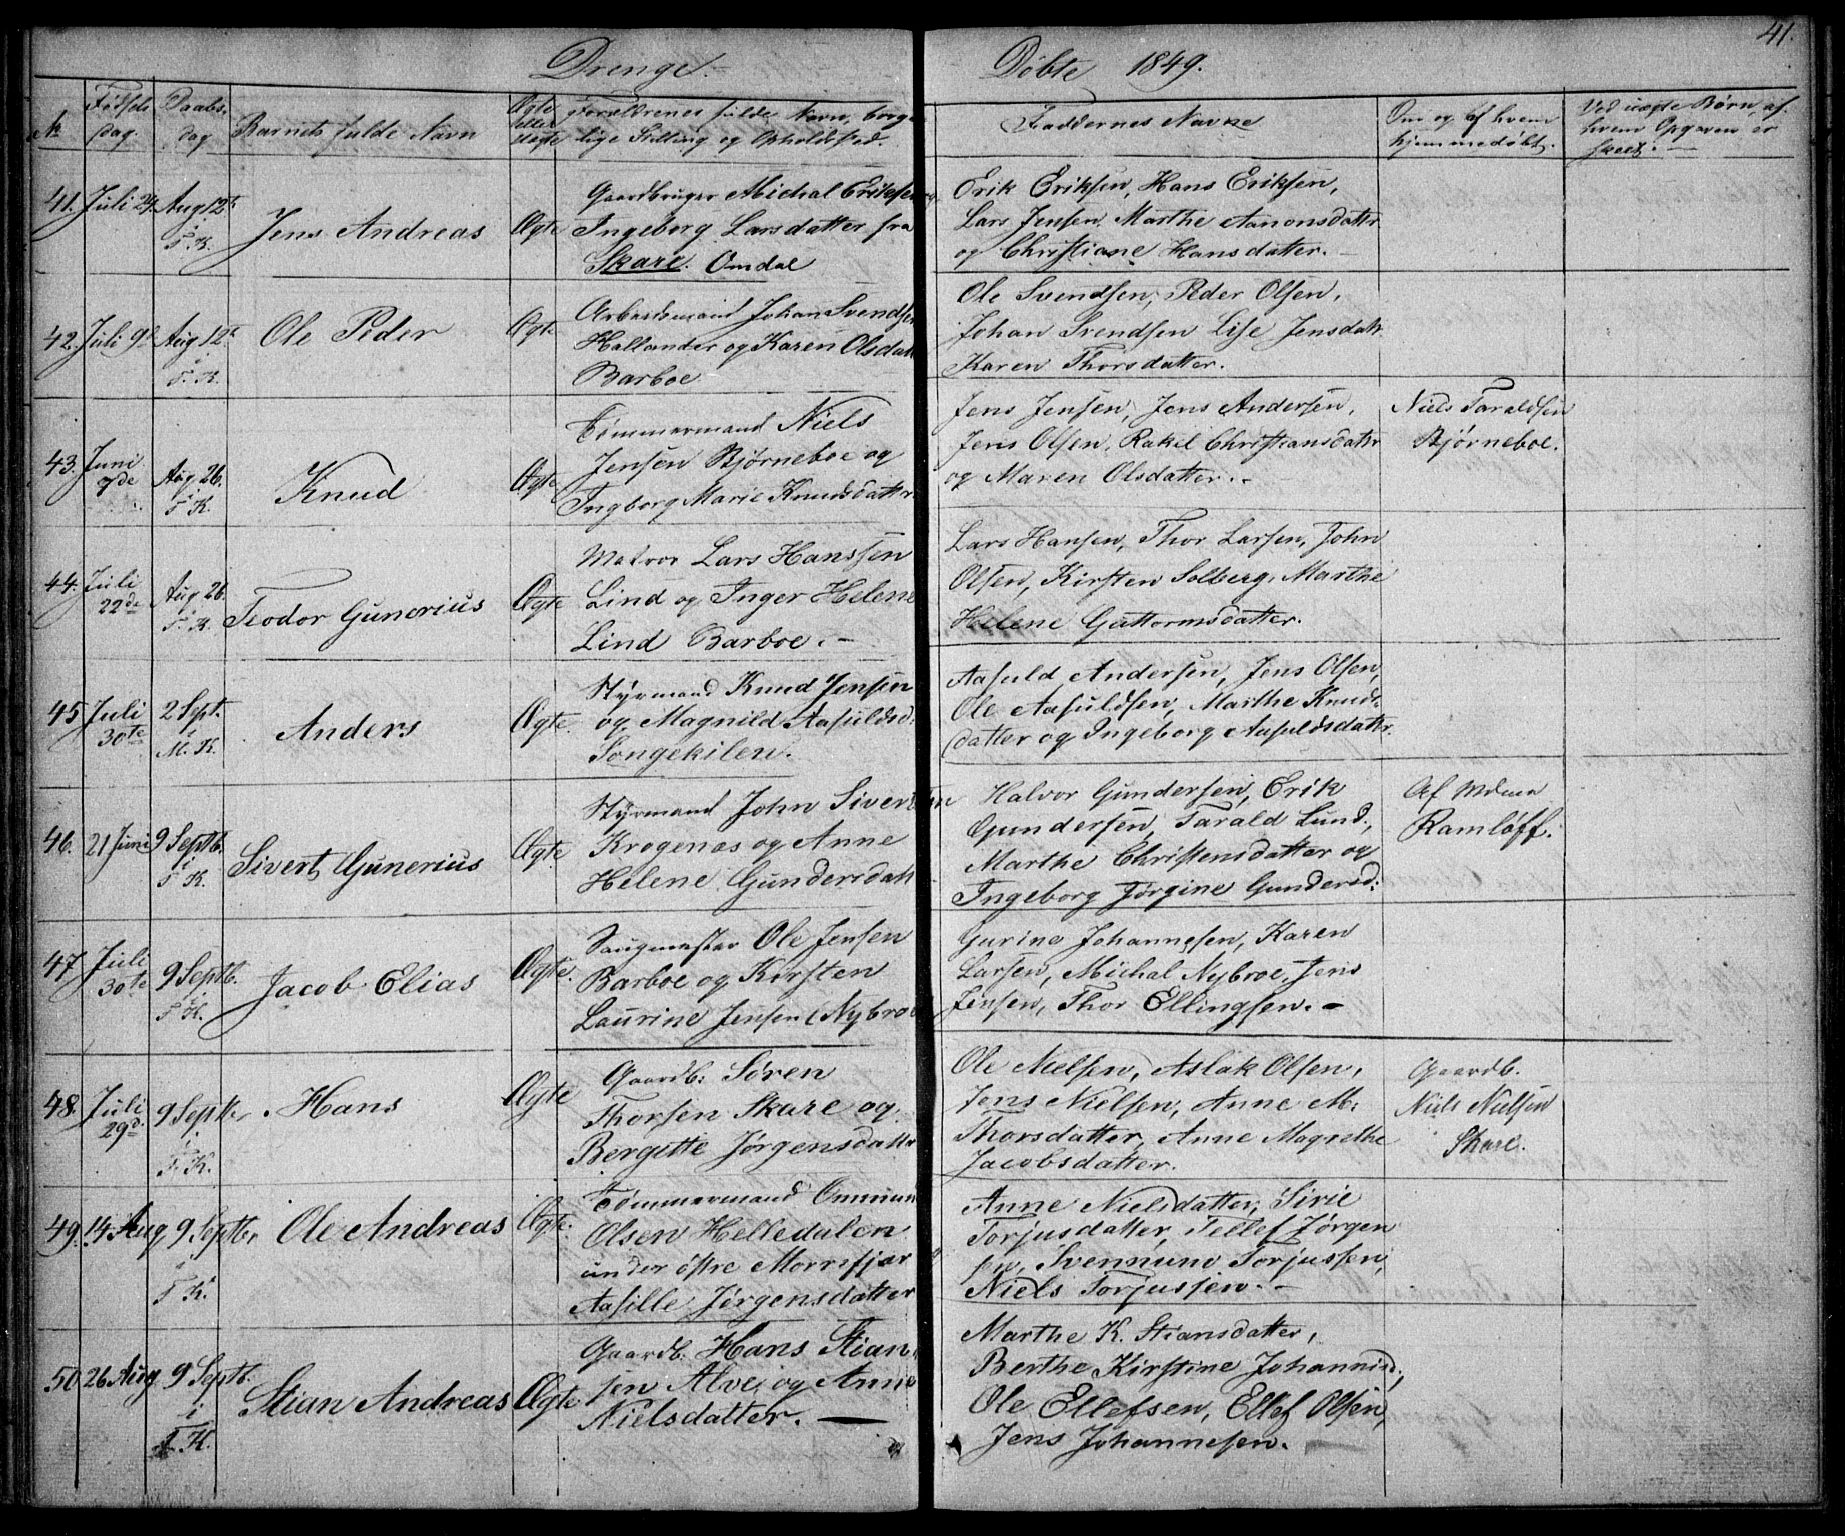 41.
Drenge.
Døbte 1849.
No
Fødsels
dag.
Daabs-
dag
Barnets fulde Navn
Ægte
eller
Uægte
Forældrenes fulde Navn, borger
lige Stilling og Opholdssted.
Faddernes Navne
Om og af hvem
hjemmedøbt.
Ved uægte Børn, af
hvem Opgaven er
skeet.
41. Juli 29. Aug 12te
i
T. K.
Jens Andreas
Ægte
Gaardbruger Michal Eriksen og
Ingeborg Larsdatter fra
Skare. Omdal
Erik Eriksen, Hans Eriksen,
Lars Jensen Marthe Aanonsdatter
og Christiane Hansdatter.
42. Juli 9de Aug 12te
i
T. K.
Ole Peder
Ægte
Arbeidsmand Johan Svendsen
Hallander og Karen Olsdatt
Barboe
Ole Svendsen, Peder Olsen,
Johan Svendsen Lise Jensdatt
Karen Thorsdatter.
43. Juni
7de
Aug 26.
i
T K.
Knud
Ægte
Tømmermand Niels
Jensen Bjørneboe og
Ingborg Marie Knudsdatter
Jens Jensen, Jens Andersen,
Jens Olsen, Rakel Christiansdatter
og Maren Olsdatter.
Niels Taraldsen
Bjørneboe.
44. Juli
22de
Aug 26.
i
T. K.
Teodor Gunerius
Ægte
Matros Lars Hanssen
Lind og Inger Helene
Lind Barboe. -
Lars Hansen, Thor Larsen, John
Olsen, Kirsten Solberg, Marthe
Helene Guttormsdatter.
45 Juli
30te
2 Sept.
i
M. K.
Anders
Ægte.
Styrmand Knud Jensen
og Magnild Aasuldsd:
Songekilen.
Aasuld Andersen, Jens Olsen,
Ole Aasuldsen, Marthe Knuds-
datter og Ingeborg Aasuldsdatter.
46. 21 Juni 9 Septb.
i
T K.
Sivert Gunerius
Ægte
Styrmand John Sivertsen
Krogenæs og Anne
Helene Gundersdatt
Halvor Gundersen, Erik
Gundersen, Tarald Lund,
Marthe Christensdatter og
Ingeborg Jørgine Gundersd:
Af Mdma
Ramløff.
47. Juli
30te
9 Septb.
i
T K.
Jacob Elias
Ægte.
Saugmester Ole Jensen
Barboe og Kirsten
Laurine Jensen (Nybroe
Gurine Johannesen, Karen
Larsen, Michal Nybroe, Jens
Jensen, Thor Ellingsen. -
48. Juli
29de
9 Septb.
i
T. K.
Hans
Ægte
Gaardb: Søren
Thorsen Skare og
Bergitte Jørgensdatter
Ole Nielsen, Aslak Olsen,
Jens Nielsen, Anne M.
Thorsdatter, Anne Magrethe
Jacobsdatter.
Gaardb.
Niels Nielsen
Skare.
49. 14 Aug 9 Septb.
i
T K.
Ole Andreas
Ægte.
Tømmermand Ommun
Olsen Helledalen
under østre Morrefjær
Aasille Jørgensdatter
Anne Nielsdatter, Sirie
Torjusdatter, Tellef Jørgen
sen, Svennung Torjussen,
Niels Torjussen. -
50 26 Aug 9 Septb.
i
T. K.
Stian Andreas
Ægte
Gaardb. Hans Stian
sen Alve, og Anne
Nielsdatter. -
Marthe K. Stiansdatter,
Berthe Kirstine Johannisd:,
Ole Ellefsen, Ellef Olsen,
Jens Johannesen.